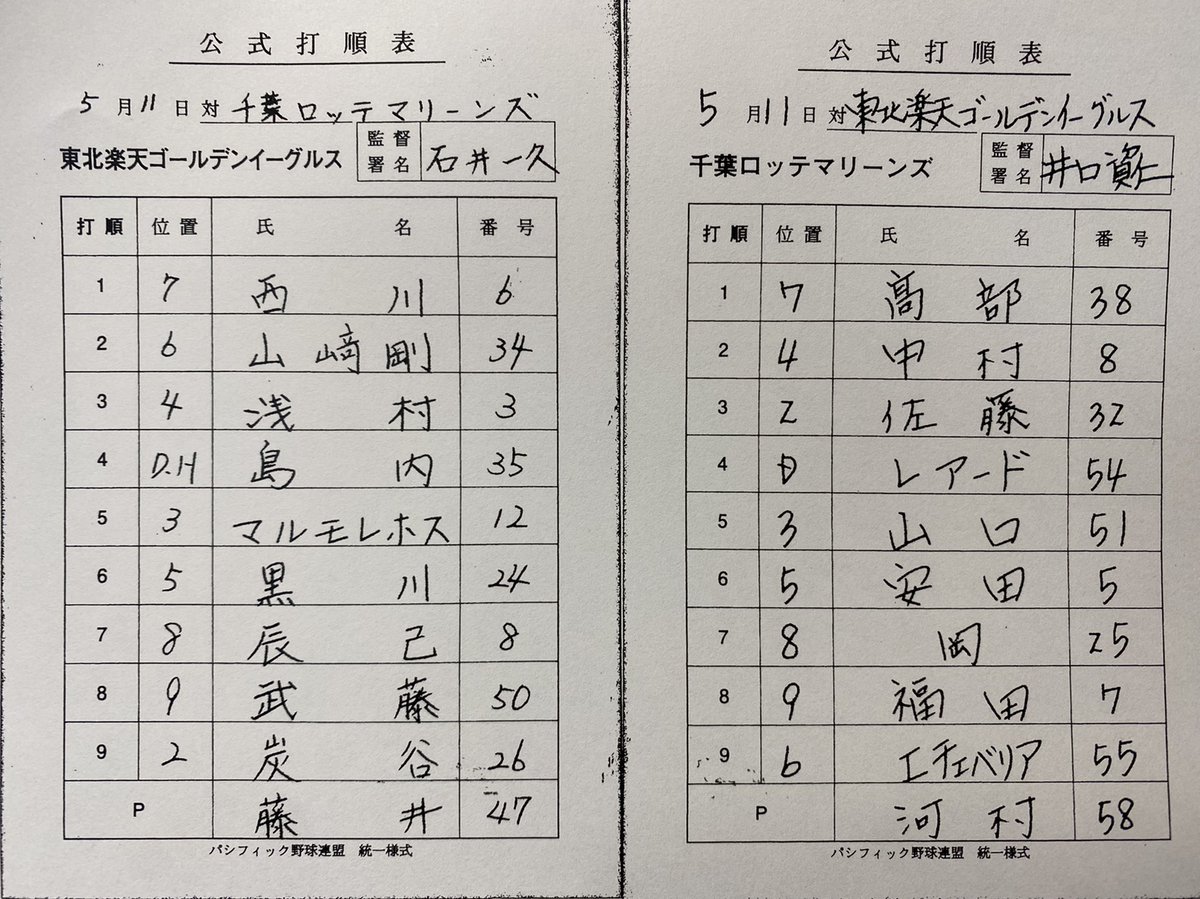 公式打順表
5月11日対 千葉ロッテマリーンズ
東北楽天ゴールデンイーグルス 監督署名 石井一久
打順 位置 氏名 番号
1 7 西川 6
2 6 山﨑剛 34
3 4 浅村 3
4 D.H 島内 35
5 3 マルモレホス 12
6 5 黒川 24
7 8 辰己 8
8 9 武藤 50
9 2 炭谷 26
P 藤井 47
パシフィック野球連盟 統一様式
公式打順表
5月11日対 東北楽天ゴールデンイーグルス
千葉ロッテマリーンズ 監督署名 井口資仁
打順 位置 氏名 番号
1 7 髙部 38
2 4 中村 8
3 2 佐藤 32
4 D レアード 54
5 3 山口 51
6 5 安田 5
7 8 岡 25
8 9 福田 7
9 6 エチェバリア 55
P 河村 58
パシフィック野球連盟 統一様式